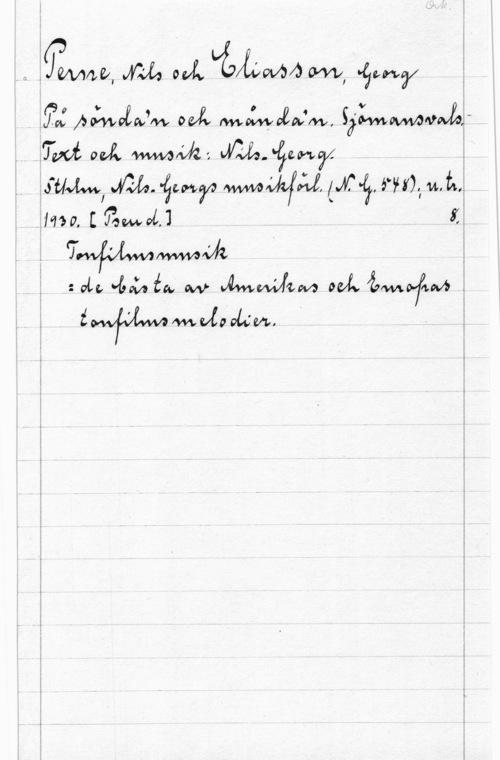 Ork.
Perne, Nils och Eliasson, Georg
På sönda'n och månda'n. Sjömansvals.
Text och musik: Nils-Georg.
Sthlm, Nils-Georgs musikförl. (N. G. 548); u. tr.
1930. [Pseud.] 8.
Tonfilmsmusik
= de bästa av Amerikas och Europas
tonfilmsmelodier.